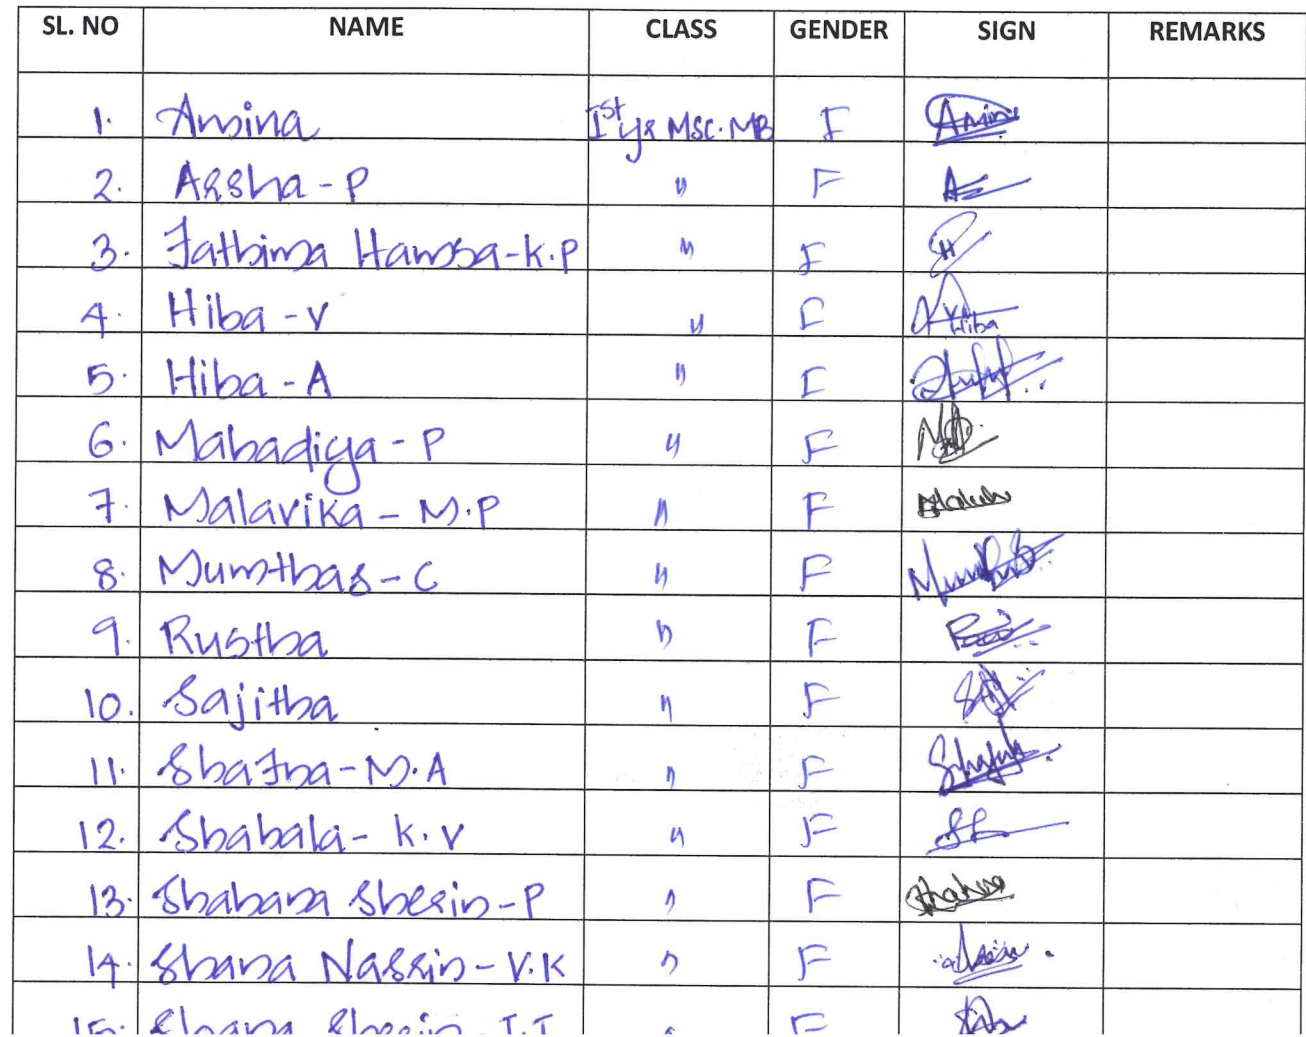 SL. NO NAME CLASS GENDER SIGN REMARKS
1. Amina Ist yr MSC. MB F Amin
2. Arsha - P " F A
3. Fathima Hamsa - K.P " F H
4. Hiba - V " F Hiba
5. Hiba - A " F
6. Mahadiya - P " F
7. Malavika - M.P " F
8. Mumthas - C " F
9. Rustha " F
10. Sajitha " F
11. Shafna - M.A " F
12. Shahala - K.V " F
13. Shahana Sherin - P " F
14. Shana Nasrin - V.K " F
15. Shana Sherin " F